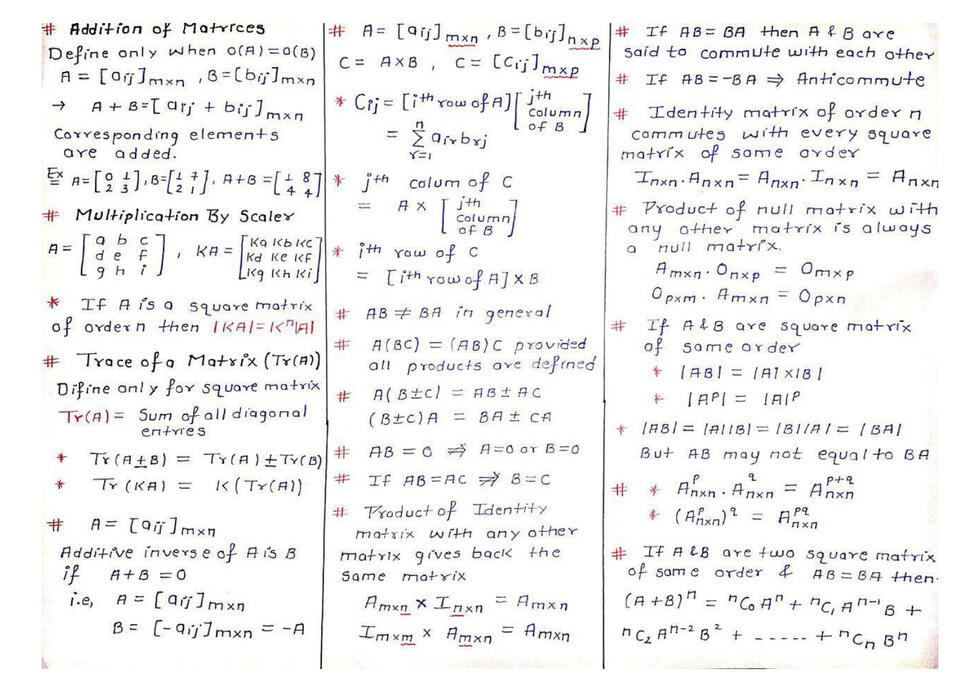 # Addition of Matrices
Define only when O(A)=O(B)
A = [aij]m×n , B=[bij]m×n
→ A + B=[aij + bij]m×n
Corresponding elements
are added.
Ex A=[0 1; 2 3], B=[1 7; 2 1], A+B=[1 8; 4 4]
# Multiplication By Scaler
A = [a b c; d e f; g h i], KA = [Ka Kb Kc; Kd Ke Kf; Kg Kh Ki]
* If A is a square matrix
of order n then |KA|=K^n|A|
# Trace of a Matrix (Tr(A))
Difine only for square matrix
Tr(A) = Sum of all diagonal
entries
* Tr(A±B) = Tr(A)±Tr(B)
* Tr(KA) = K(Tr(A))
# A= [aij]m×n
Additive inverse of A is B
if A+B =0
i.e, A = [aij]m×n
B = [-aij]m×n = -A
# A= [aij]m×n , B=[bij]n×p
C= A×B , C= [Cij]m×p
* Cij = [ith row of A][jth column of B]
= n∑r=1 air brj
* jth colum of C
= A × [jth column of B]
* ith row of C
= [ith row of A] × B
# AB ≠ BA in general
# A(BC) = (AB)C provided
all products are defined
# A(B±C) = AB ± AC
(B±C)A = BA ± CA
# AB = 0 ⇏ A=0 or B=0
# If AB=AC ⇏ B=C
# Product of Identity
matrix with any other
matrix gives back the
same matrix
Am×n × In×n = Am×n
Im×m × Am×n = Am×n
# If AB= BA then A & B are
said to commute with each other
# If AB=-BA ⇒ Anticommute
# Identity matrix of order n
commutes with every square
matrix of same order
In×n.An×n = An×n.In×n = An×n
# Product of null matrix with
any other matrix is always
a null matrix.
Am×n . On×p = Om×p
Op×m . Am×n = Op×n
# If A & B are square matrix
of same order
* |AB| = |A|×|B|
* |A^P| = |A|^P
* |AB| = |A||B| = |B||A| = |BA|
But AB may not equal to BA
# * A^p n×n . A^q n×n = A^p+q n×n
* (A^p n×n)^q = A^pq n×n
# If A & B are two square matrix
of same order & AB=BA then.
(A+B)^n = nC0 A^n + nC1 A^n-1 B +
nC2 A^n-2 B^2 + ----- + nCn B^n